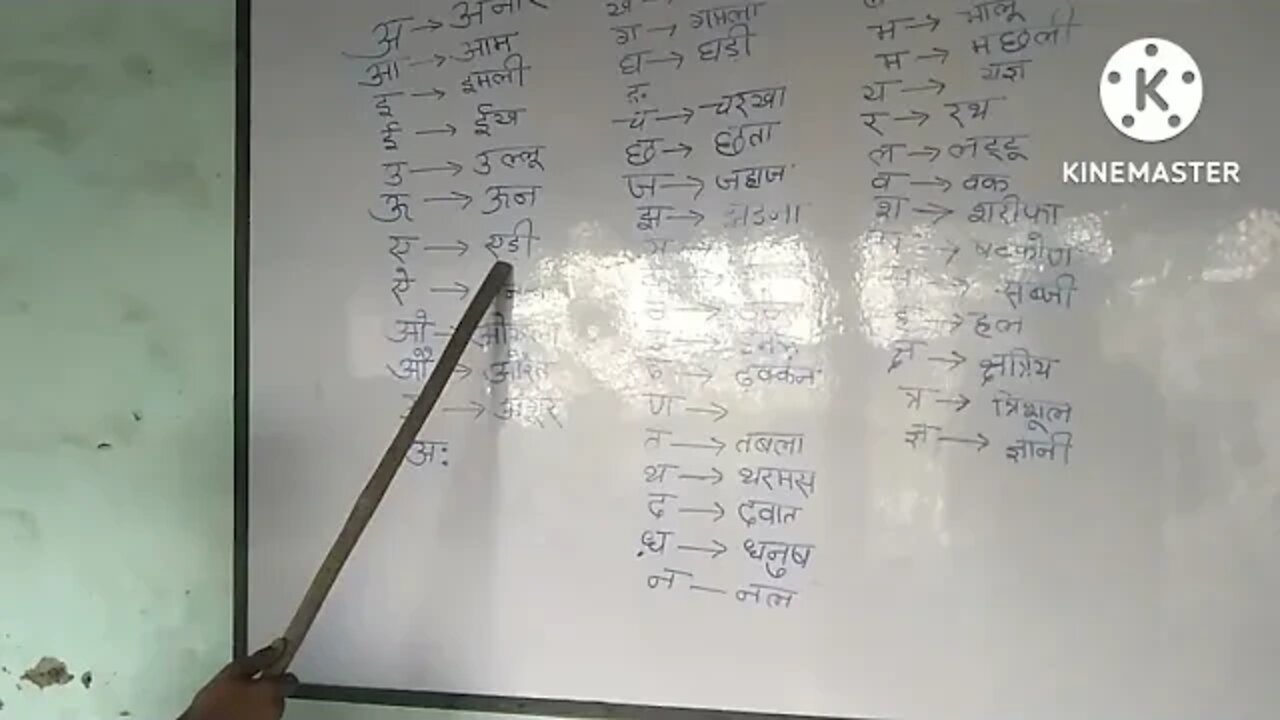 अ → अनार
आ → आम
इ → इमली
ई → ईख
उ → उल्लू
ऊ → ऊन
ए → एडी
ऐ →
ओ →
औ → औरत
→ अंगूर
अः
ख
ग → गमला
घ → घडी
ङ
च → चरखा
छ → छाता
ज → जहाज
झ → झडना
ढ → ढक्कन
ण →
त → तबला
थ → थरमस
द → दवात
ध → धनुष
न — नल
भ → भालू
म → मछली
य → यज्ञ
र → रथ
ल → लड्डू
व → वक
श → शरीफा
→ षटकोण
→ सब्जी
ह → हल
क्ष → क्षत्रिय
त्र → त्रिशूल
ज्ञ → ज्ञानी
K
KINEMASTER